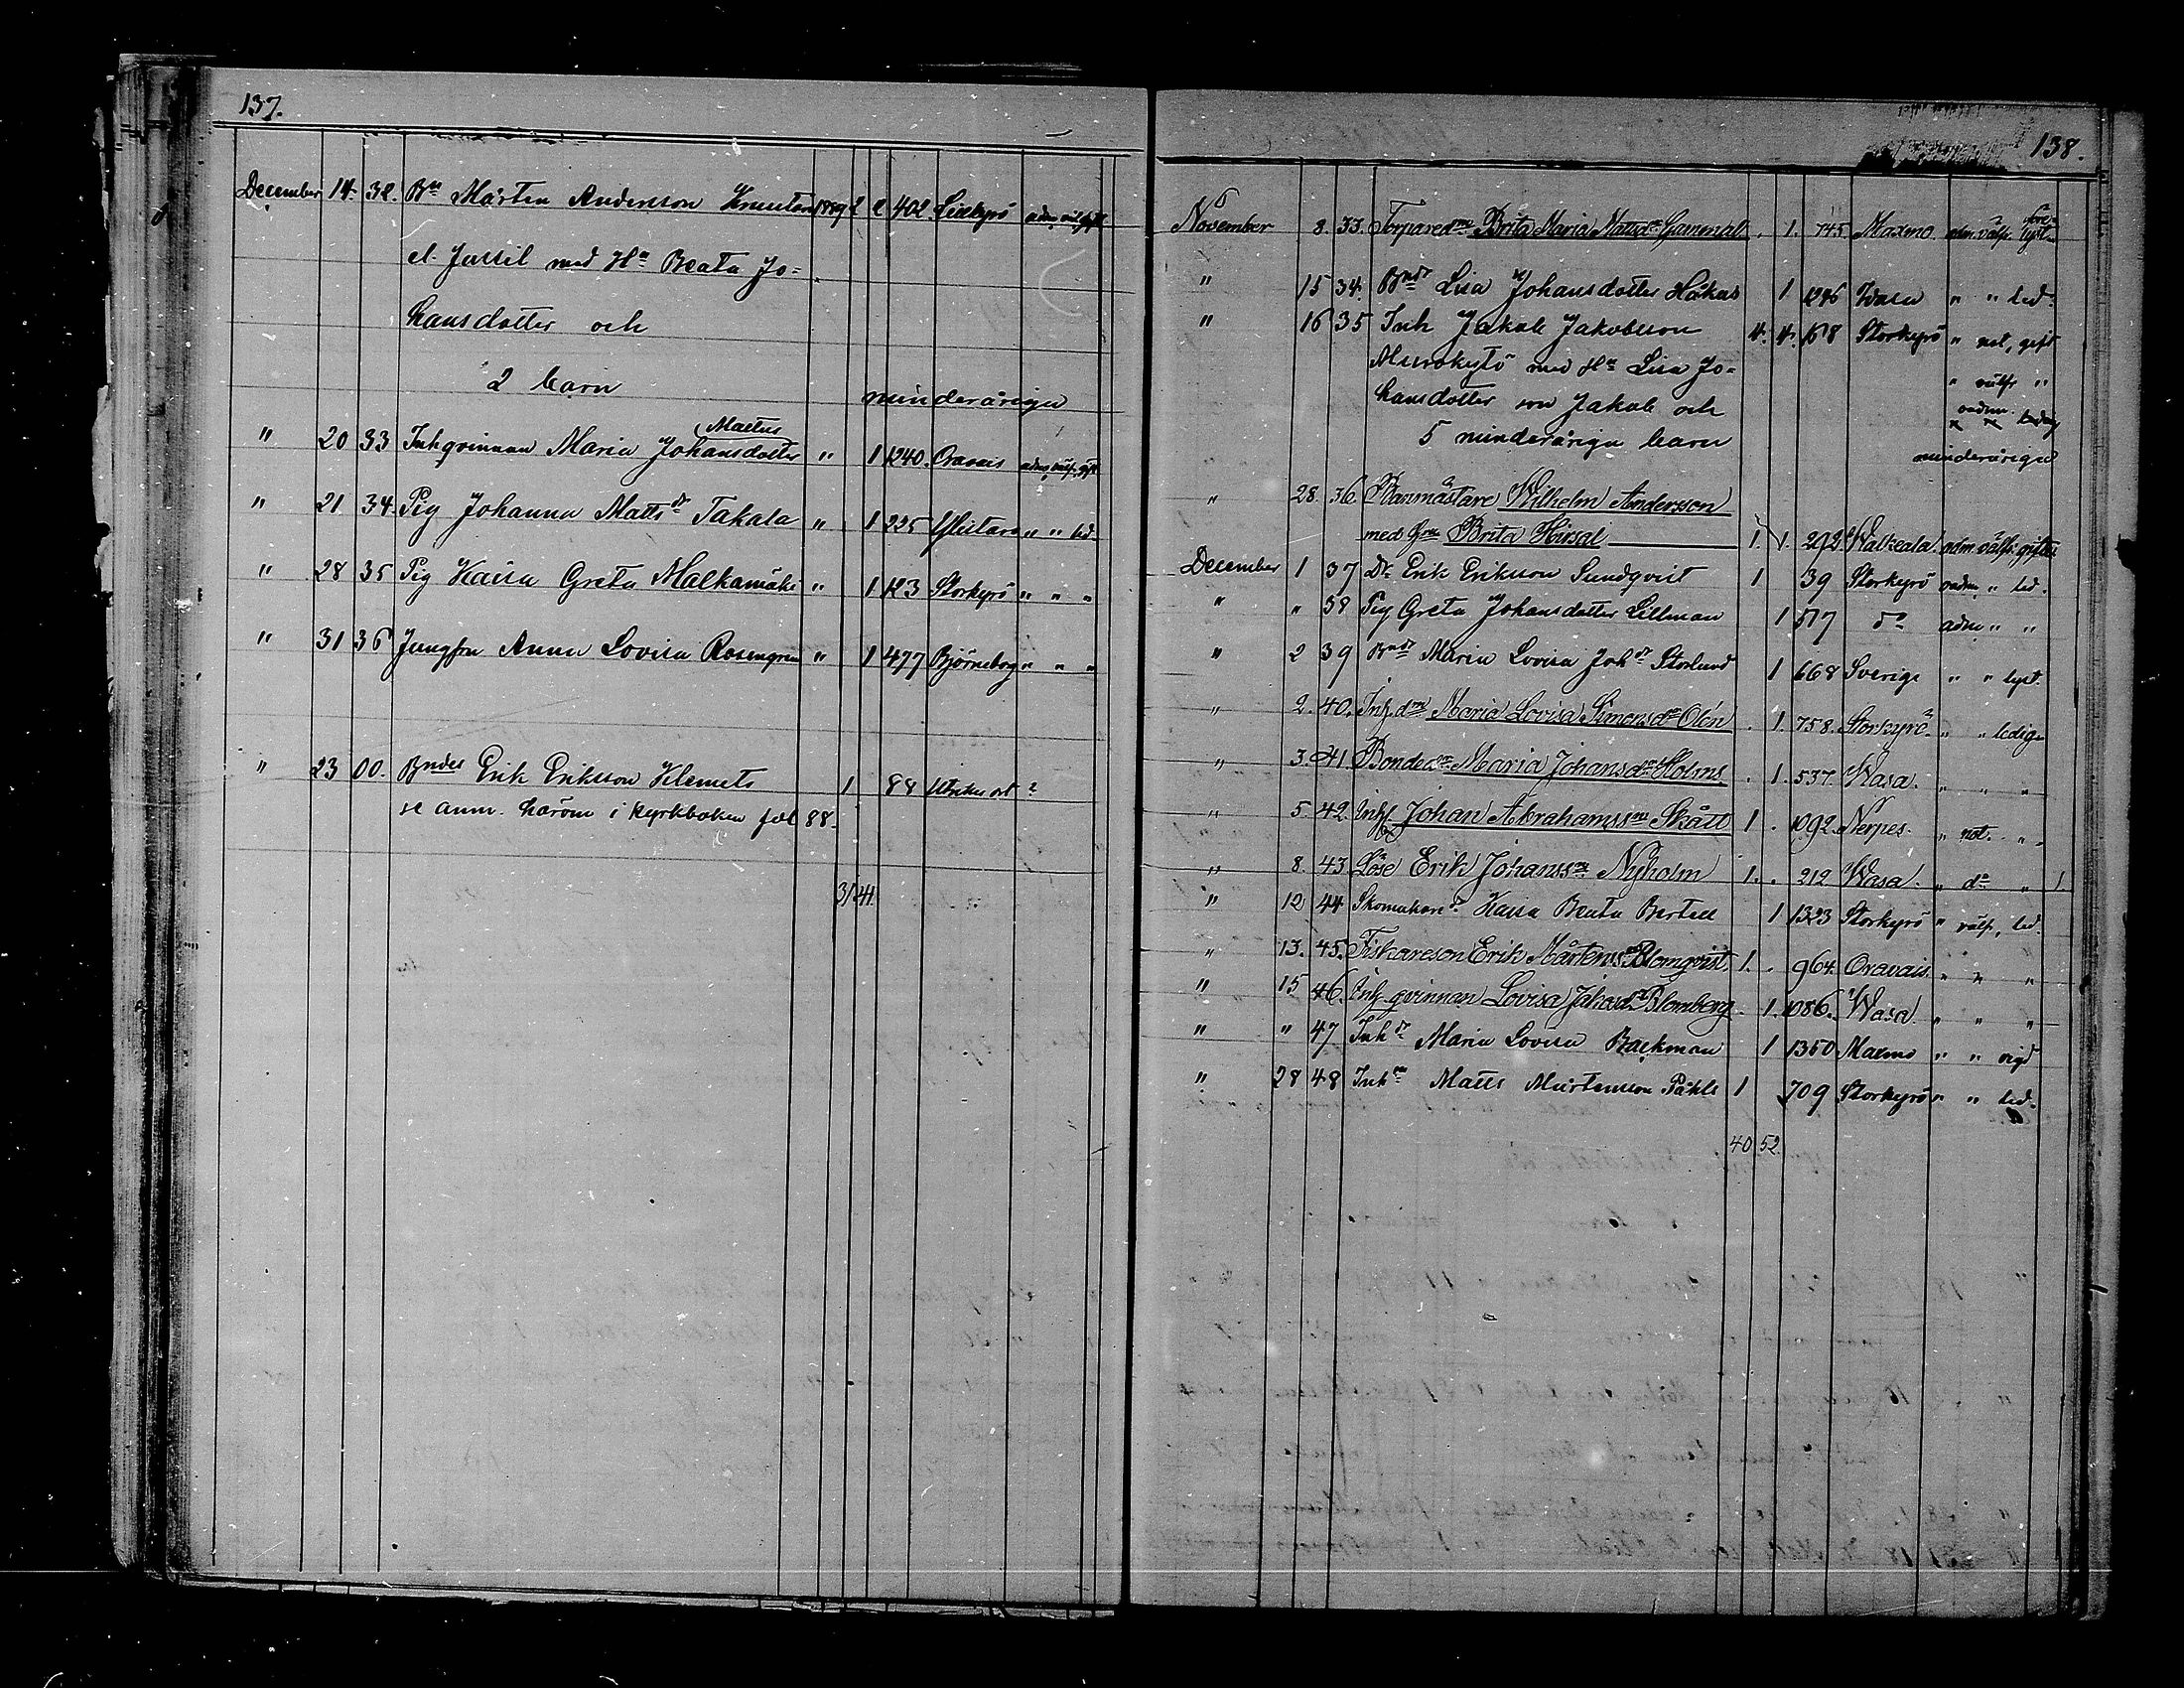 137.
December 14. 32. Bn Mårten Andersson Knuutar 1889 2 2 402 Lillkyrö adm, välf, gift
el. Jussil med Ha Beata Jo-
hansdotter och
2 barn minderåriga
Mattus
" 20 33 Inhqvinnan Maria Johansdotter " 1 1240. Oravais adm, välf, gift
" 21 34. Pig Johanna Matts dr Takala " 1 225 Ylistaro " " led.
" 28 35 Pig Kaisa Greta Malkamäki " 1 123 Storkyrö " " "
" 31 36 Jungfru Anna Lovisa Rosengren " 1 477 Björneborg " " "
" 23 00. Bndes Erik Eriksson Klemets 1 88 Utrikes ort ?
se anm. härom i kyrkboken fol 88.
31 41.
138.
November 8. 33. Torparedtr Brita Maria Mattsdr Gammal . 1. 745 Maxmo. adm. välfr. lyst
" 15 34. Bndr Lisa Johansdotter Håkas 1 1286 Wasa " " led.
" 16 35 Inh Jakob Jakobsson 4. 4. 1618 Storkyrö " nat, gift
med Ha Lisa Jo- " välfr "
hansdotter son Jakob och oadm.
5 minderåriga barn minderåriga
" 28. 36. Banmästare Wilhelm Andersson
med hu Brita Hirsal 1. 1. 292. Walkeala. adm. välfr. gifta
December 1 37 Dr Erik Eriksson Sundqvist 1 39 Storkyrö oadm " led.
" " 38 Pig Greta Johansdotter Lillman 1 517 do adm " "
" 2 39 Bndr Maria Lovisa Johdr Storlund 1 668 Sverige " " lyst.
" 2. 40. Inh. dtr Maria Lovisa Simonsdr Olén . 1. 758. Storkyrö. " " ledig
" 3. 41. Bondedr Maria Johansdr Holms . 1. 537. Wasa. " " "
" 5. 42. Inhs Johan Abrahamsson Skått 1 . 1092. Nerpes. " nat. "
" 8. 43. Löse Erik Johansson Nyholm 1. . 212 Wasa. " do " 1.
" 12 44 Skomakare dr Kaisa Beata Bertell 1 1323 Storkyrö " välf, led.
" 13. 45. Fiskareson Erik Mårtens Blomqvist. 1. . 964. Oravais. " " "
" 15 46. Inh. qvinnan Lovisa Jakobsdr Blomberg . 1. 1086. Wasa. " " "
" " 47 Inh dr Maria Lovisa Backman 1 1350 Maxmo " " vigd
" 28 48 Inh sn Matts Mårtensson Påhls 1 709 Storkyrö " " led.
40 52.